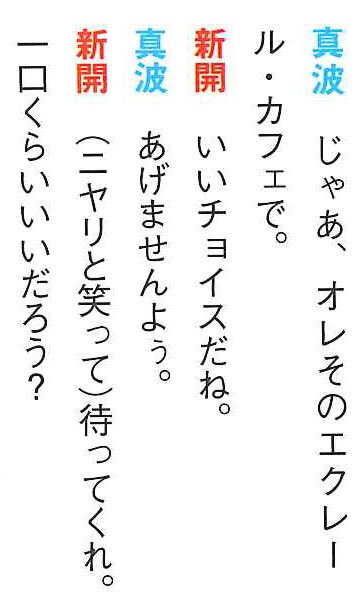 真波　じゃあ、オレそのエクレー
ル・カフェで。
新開　いいチョイスだね。
真波　あげませんよぅ。
新開　（ニヤリと笑って）待ってくれ。
一口くらいいいだろう？